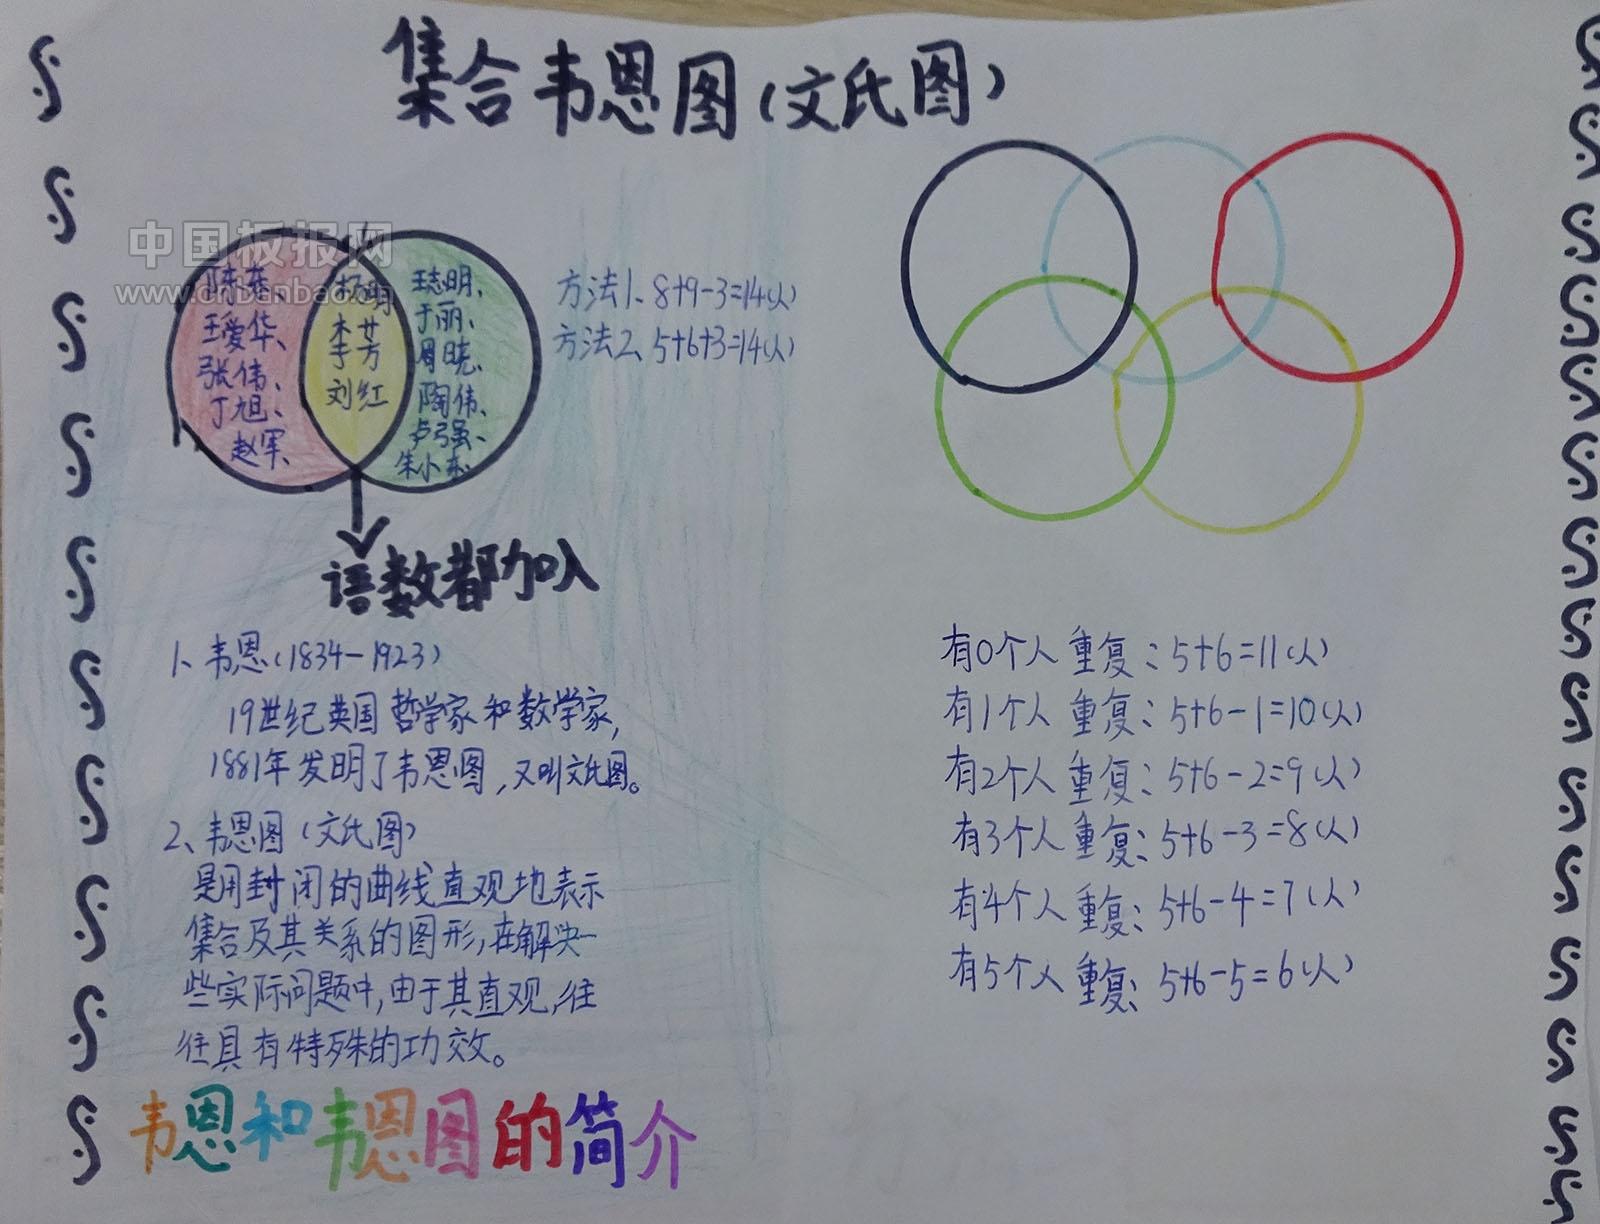 集合韦恩图(文氏图)
中国板报网
www.chbanbao.com
陈东、
王爱华、
张伟、
丁旭、
赵军、
杨明
李芳
刘红
王志明、
于丽、
周晓、
陶伟、
卢强、
朱小东
方法1、8+9-3=14(人)
方法2、5+6+3=14(人)
语数都加入
1、韦恩(1834-1923)
19世纪英国哲学家和数学家,
1881年发明了韦恩图,又叫文氏图。
2、韦恩图(文氏图)
是用封闭的曲线直观地表示
集合及其关系的图形,在解决一
些实际问题中,由于其直观,往
往具有特殊的功效。
韦恩和韦恩图的简介
有0个人重复:5+6=11(人)
有1个人重复:5+6-1=10(人)
有2个人重复:5+6-2=9(人)
有3个人重复:5+6-3=8(人)
有4个人重复:5+6-4=7(人)
有5个人重复:5+6-5=6(人)